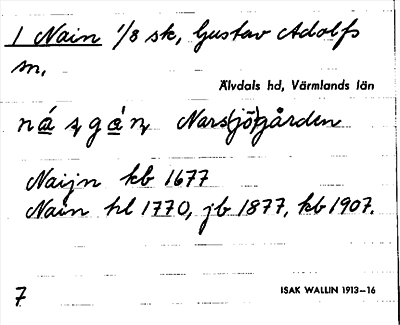 1 Nain 1/8 sk, Gustav Adolfs
sn.
Älvdals hd, Värmlands län
Nars(jö)gården
Naijn kb 1677
Nain hl 1770, jb 1877, kb 1907.
7
ISAK WALLIN 1913–16